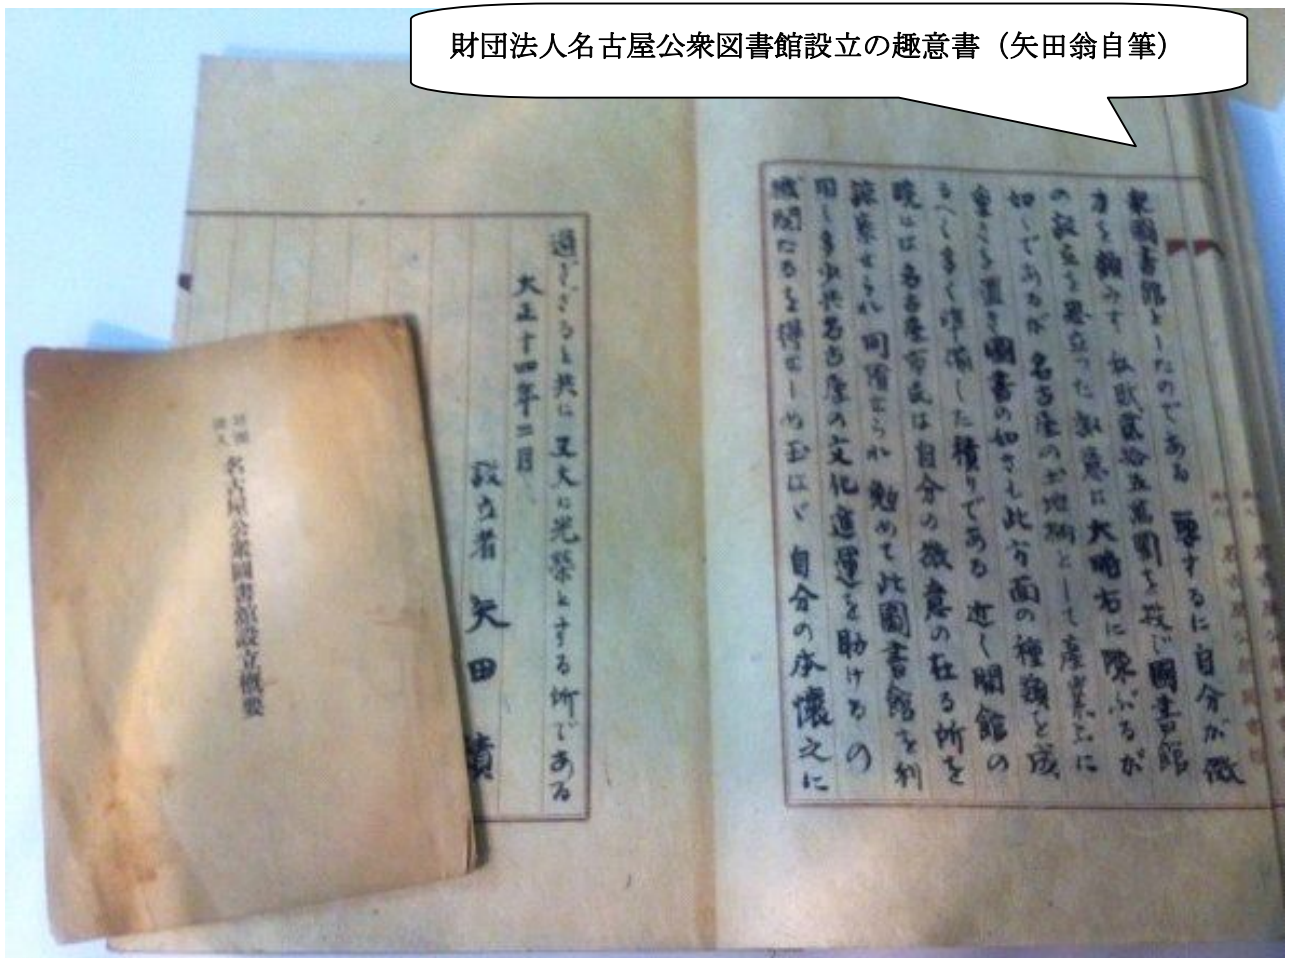 財団法人名古屋公衆図書館設立の趣意書（矢田翁自筆）
衆圖書館としたのである 要するに自分が微
力を顧みず 私財貳拾五萬圓を投じ圖書館
の設立を思立つた趣意は大略右に陳ぶるが
如しであるが 名古屋の土地柄として産業に
重きを置き圖書の如きも此方面の種類を成
るべく多く準備した積りである 近く開館の
暁には名古屋市民は自分の微意の在る所を
諒察せられ 同情せられ 勉めて此圖書館を利
用し多少共名古屋の文化進運を助けるの
機関たるを得せしめ玉はゞ 自分の本懐之に
過ぎざると共に至大に光榮とする所である
大正十四年二月
設立者 矢田 績
財團法人 名古屋公衆圖書館設立概要